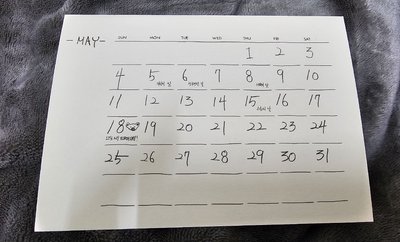 -MAY- SUN MON TUE WED THU FRI SAT
1 2 3
4 5 6 7 8 9 10
11 12 13 14 15 16 17
18 19 20 21 22 23 24
25 26 27 28 29 30 31